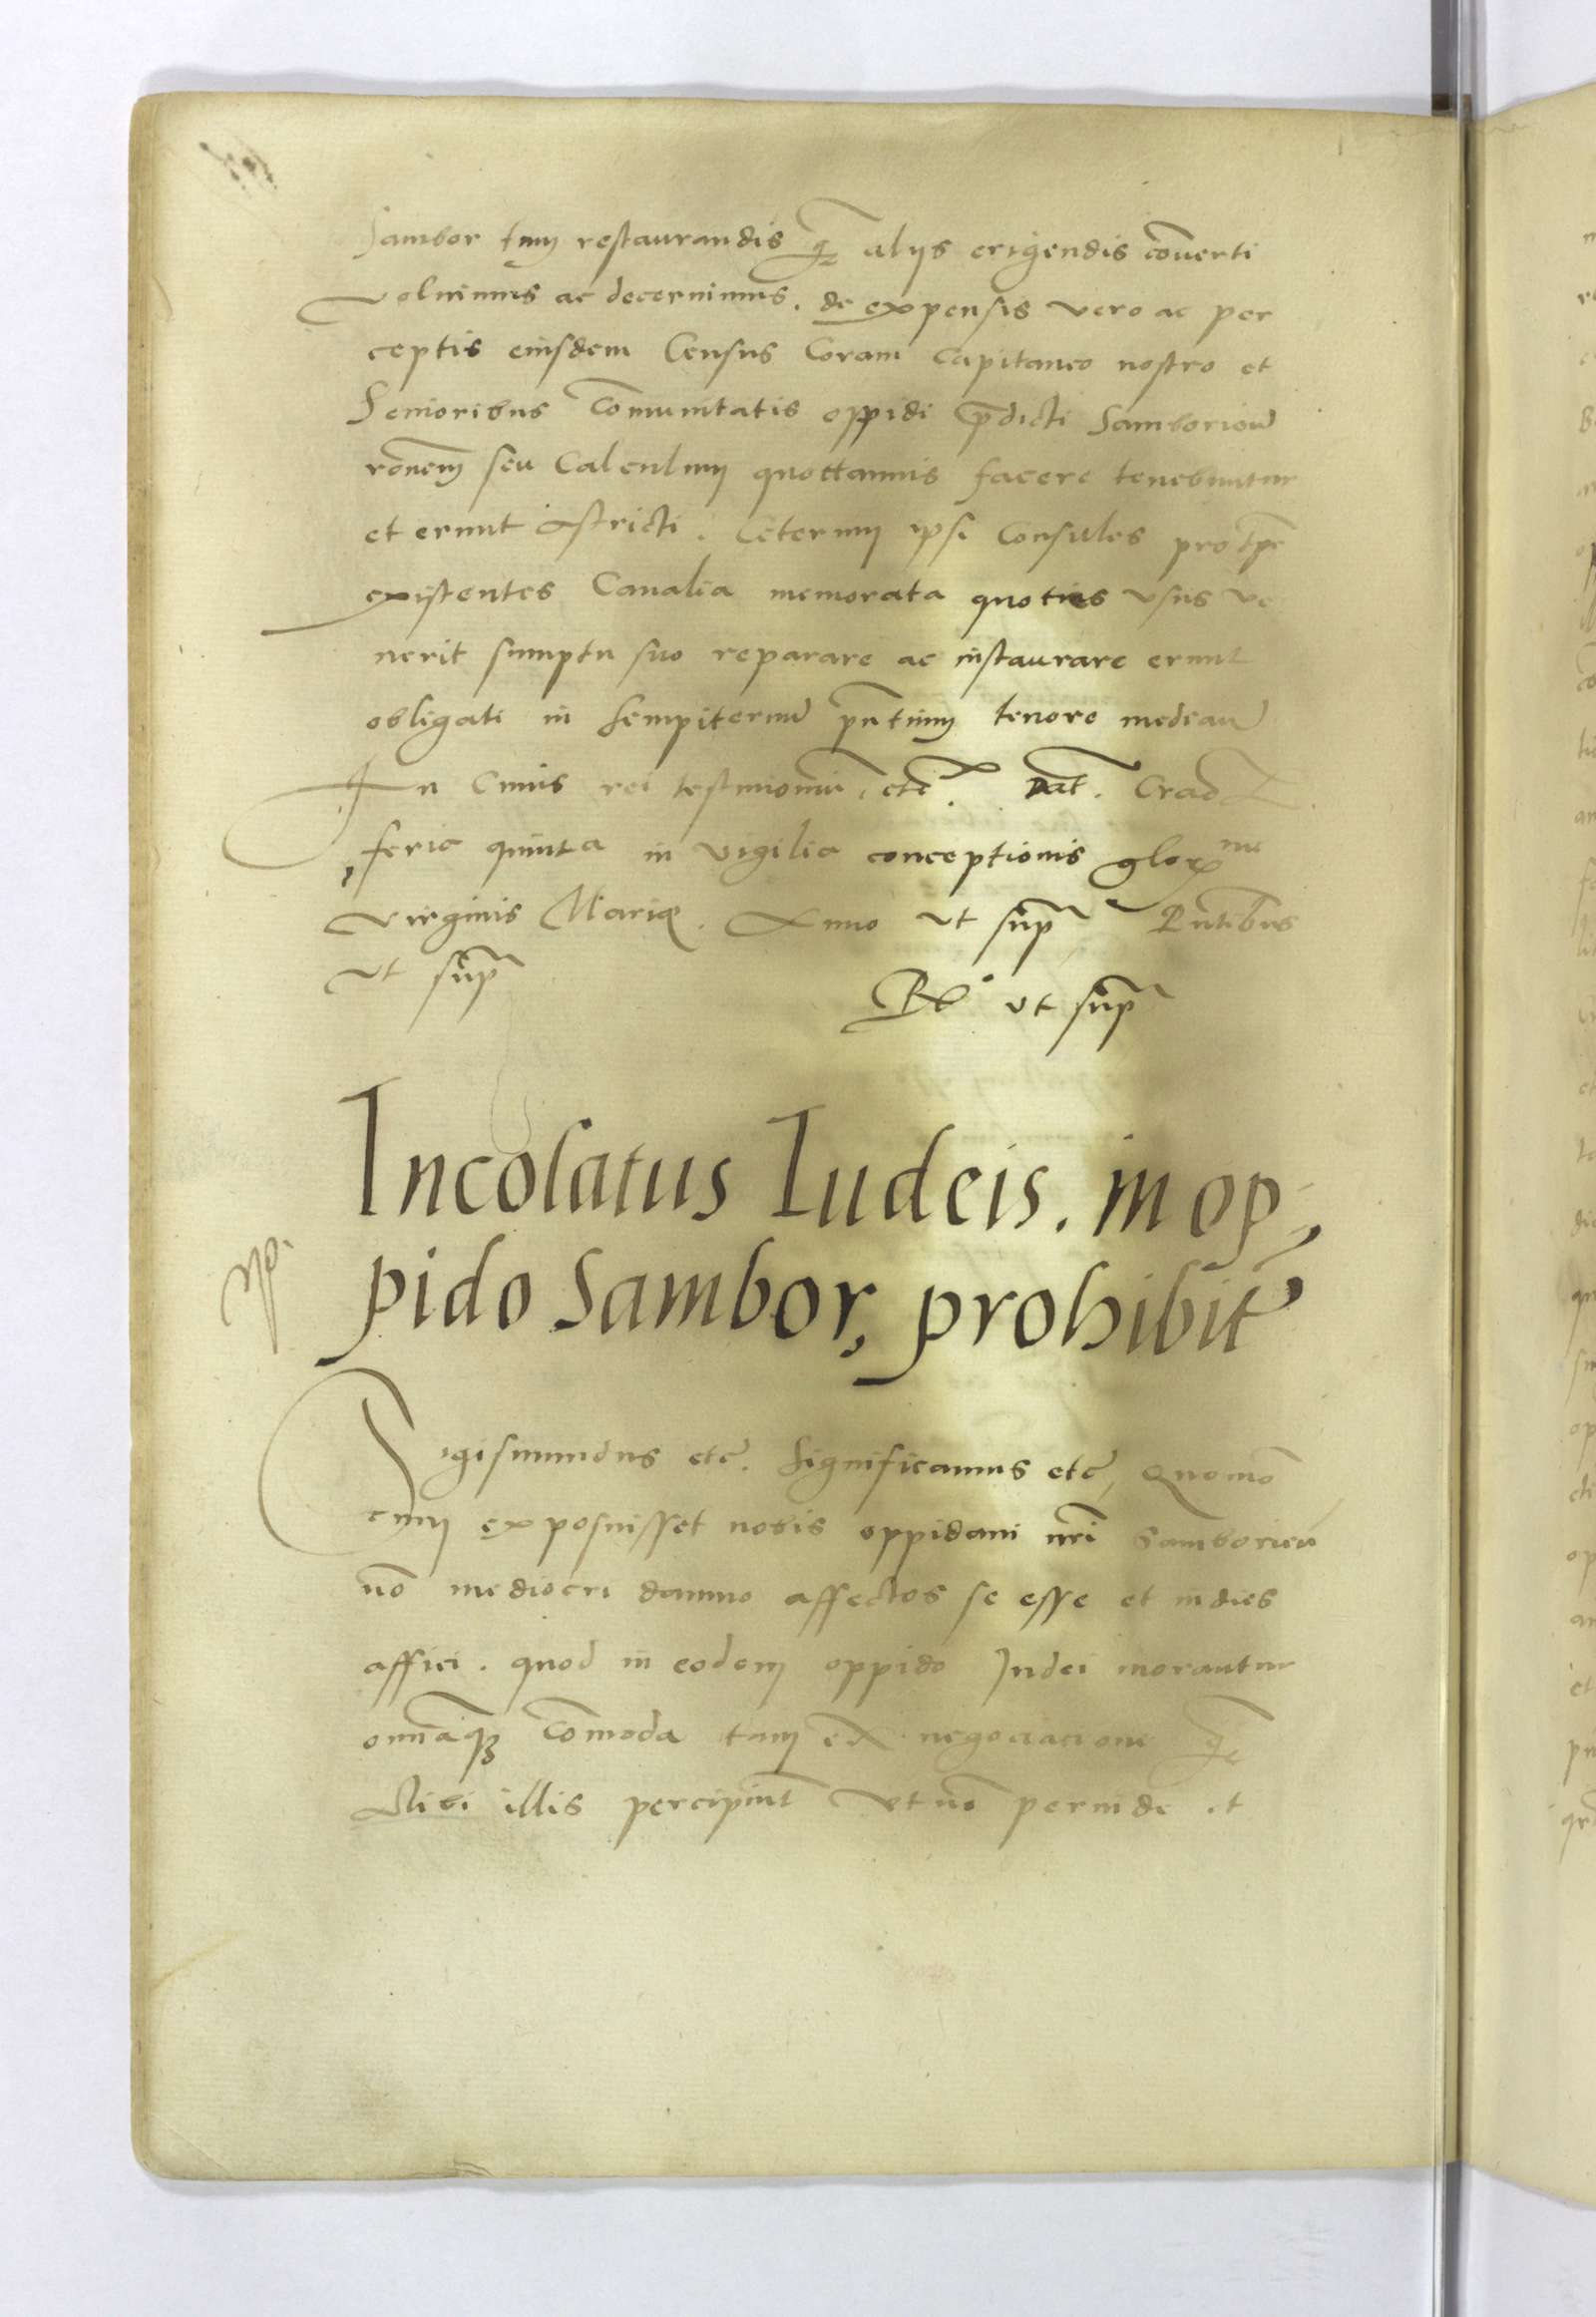 Sambor tum restaurandis q̃ alijs erigendis cõuerti
voluimus ac decernimus. de expensis vero ac per
ceptis eiusdem Census Coram Capitaneo nostro et
Senioribus Cõmunitatis oppidi p̃dicti Samborieñ
rõnem seu Calculum quottannis facere tenebuntur
et erunt astricti. Ceterum ipsi Consules pro tp̃e
existentes Canalia memorata quoties vsus ve
nerit sumptu suo reparare ac instaurare erunt
obligati in sempiternũ pñtium tenore mediañ
In Cuius rei testimoniũ, etc̃. Dat̃. Crac̃
feria quinta in vigilia conceptionis glor
virginis Marię. Anno vt sup̃ Pñtibus
vt sup̃
Rº vt sup̃
Incolatus Iudeis. in op,
pido Sambor, prohibit̃
Sigismundus etc̃. Significamus etc̃, Quomõ
cum exposuissent nobis oppidani nr̃i Samborieñ
nõ mediocri damno affectos se esse et indies
affici. quod in eodem oppido Judei morantur
omñiaq3 Cõmoda tam ex negociacione q̃
illis percipiunt̃ vt nõ perinde et